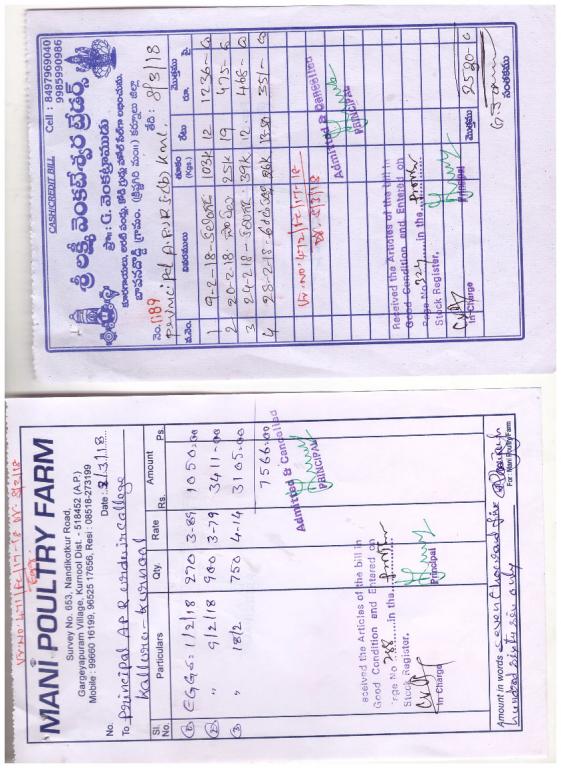 CASH/CREDIT BILL
Cell : 8497969040
9985990986
శ్రీ లక్ష్మీ వెంకటేశ్వర ట్రేడర్స్
ప్రొ: G. వెంకట్రాముడు
నెం. 1189
తేది : 8/3/18
Principal A.P.R.S
వ.నెం. వివరములు తూకం (Kgs.) రేటు మొత్తము రూ. పై.
1 9-2-18- 103k 12 1236-00
2 20-2-18 25k 19 475-00
3 24-2-18- 39k 12 468-00
4 28-2-18- 26k 13-50 351-00
Vr.No:472/FC/17-18
Dt. 8/3/18
Admitted & Cancelled
PRINCIPAL
Received the Articles of the bill in
Good Condition and Entered on
Page No. 324 in the
Stock Register.
In-Charge
Principal
మొత్తము 2530-0
సంతకము
Vr.No:471/FC/17-18 Dt. 8/3/18
MANI POULTRY FARM
Survey No. 653, Nandikotkur Road,
Gargeyapuram Village, Kurnool Dist. - 518452 (A.P.)
Mobile : 99660 16199, 96525 17656, Resi : 08518-273199
No.
Date : 8/3/18
To Principal APR college
Kalluru-Kurnool
Sl. No. Particulars Qty. Rate Amount Rs. Ps.
① EGGS: 1/2/18 270 3-89 1050-00
② " 9/2/18 900 3-79 3411-00
③ " 18/2 750 4-14 3105-00
7566-00
Admitted & Cancelled
PRINCIPAL
Received the Articles of the bill in
Good Condition and Entered on
Page No. 288 in the
Stock Register.
In-Charge
Principal
Amount in words seven thousand five
hundred sixty six only
For: Mani Poultry Farm